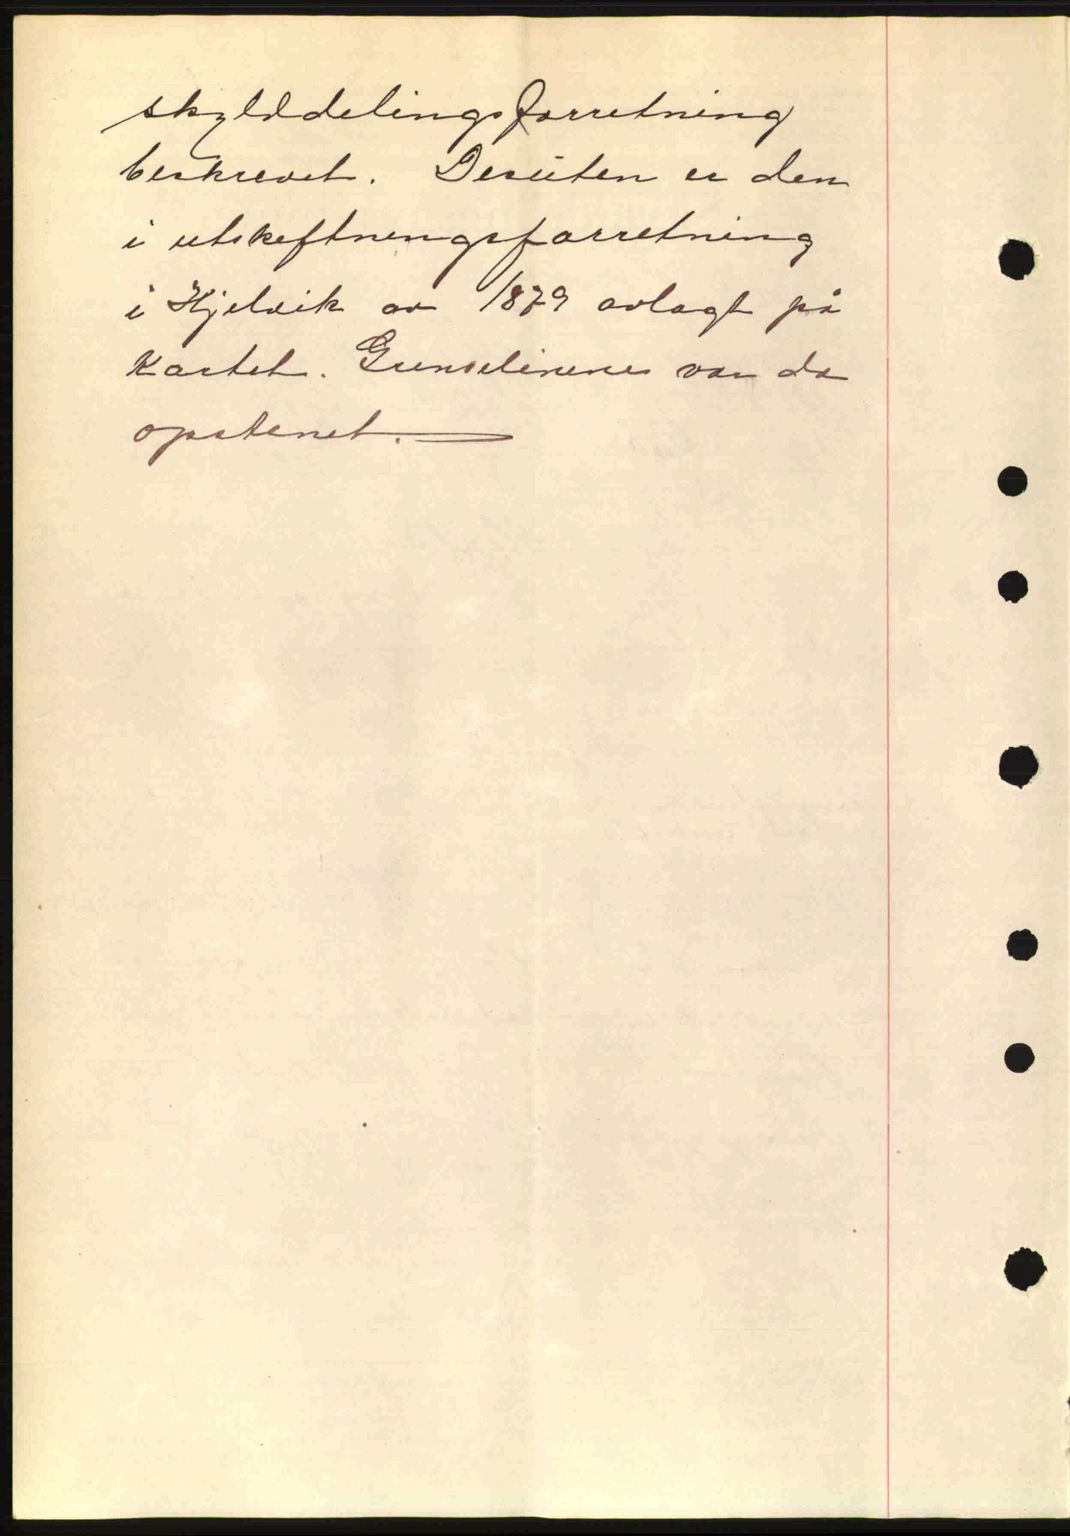 skylddelingsforretning
beskrevet. Desuten er den
i utskeftningsforretning
i Hjelvik av 1879 avlagt på
kartet. Grenselinene var da
opstenet.